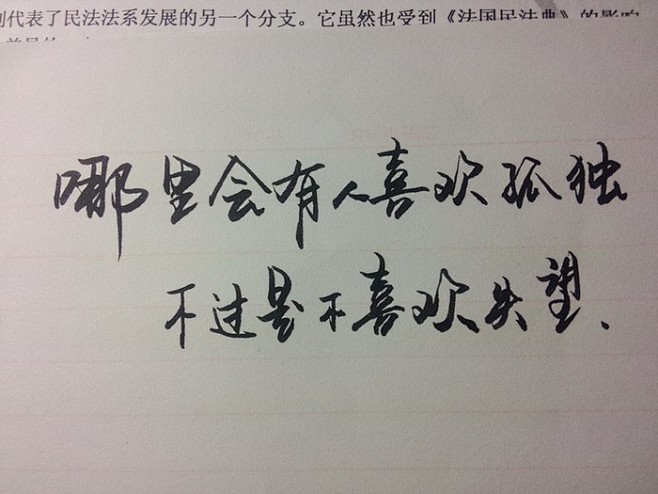 代表了民法法系发展的另一个分支。它虽然也受到《法国民法典》的影响
哪里会有人喜欢孤独
不过是不喜欢失望、